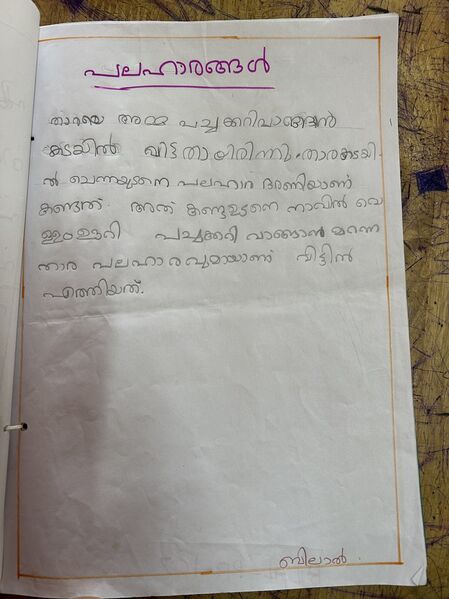 പലഹാരങ്ങൾ
താരയെ അമ്മ പച്ചക്കറിവാങ്ങാൻ
കടയിൽ വിട്ടതായിരിന്നു. താരകടയി-
ൽ ചെന്നയുടനെ പലഹാര ഭരണിയാണ്
കണ്ടത്. അത് കണ്ടഉടനെ നാവിൽ വെ
ള്ളംഊറി പച്ചക്കറി വാങ്ങാൻ മറന്ന
താര പലഹാരവുമായാണ് വീട്ടിൽ
എത്തിയത്.
ബിലാൽ